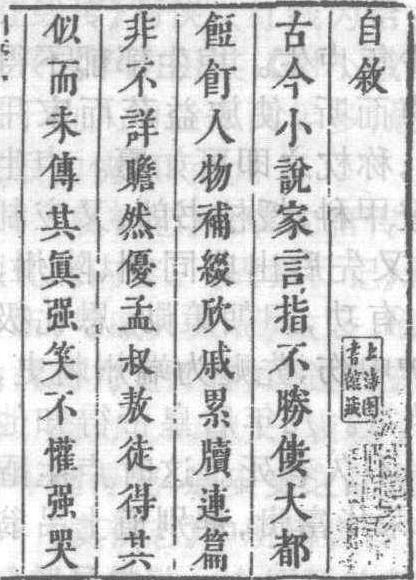 自敘
上海圖
書館藏
古今小說家言指不勝僂大都
餖飣人物補綴欣戚累牘連篇
非不詳贍然優孟叔敖徒得其
似而未傳其眞强笑不懽强哭